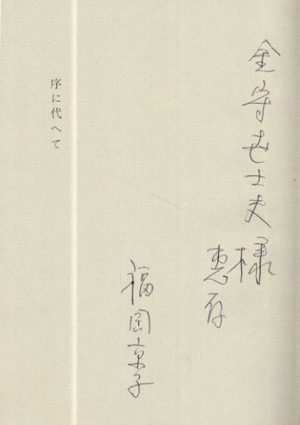 金守世士夫様
恵存
福岡京子
序に代へて